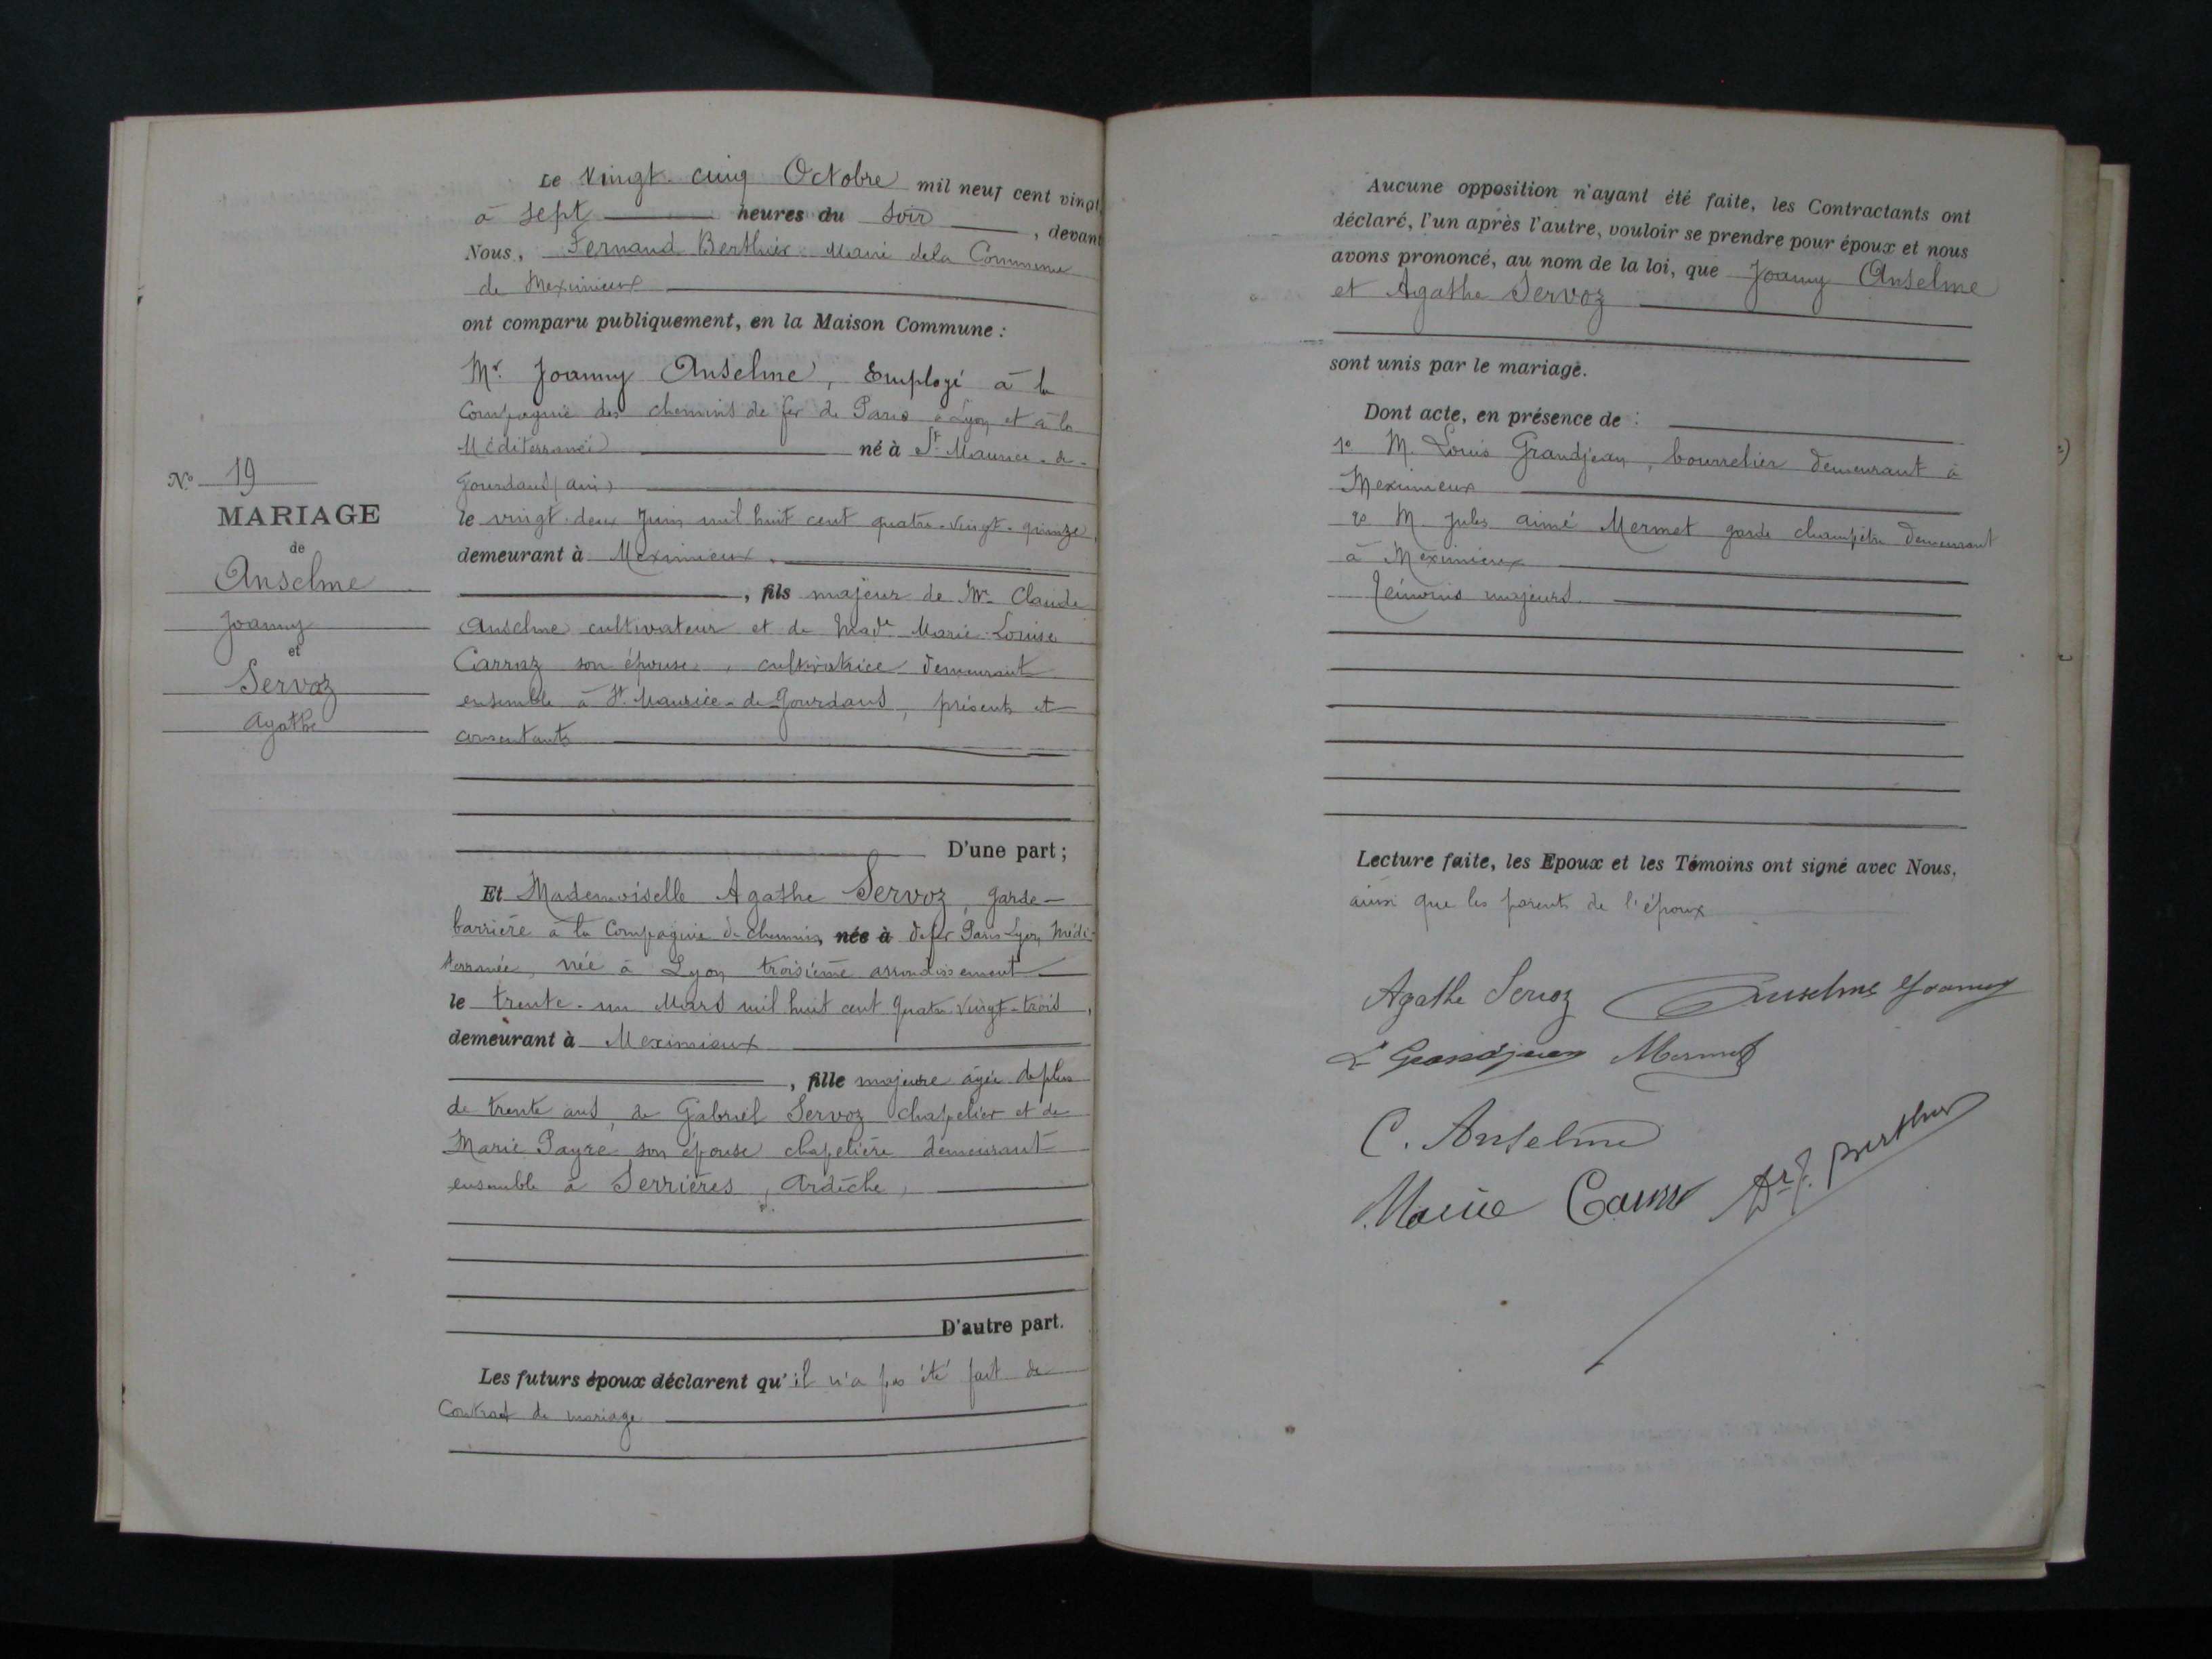 Le Vingt-cinq Octobre mil neuf cent vingt
à sept heures du soir, devant
Nous, Fernand Berthier Maire de la Commune
de Meximieux
ont comparu publiquement, en la Maison Commune :
Mr. Joanny Anselme, Employé à la
Compagnie des chemins de fer de Paris à Lyon et à la
Méditerranée né à St Maurice-de-
Gourdans (Ain)
le vingt-deux Juin mil huit cent quatre-vingt-quinze,
demeurant à Meximieux,
, fils majeur de Mr Claude
Anselme cultivateur et de Made Marie-Louise
Carraz son épouse, cultivatrice demeurant
ensemble à St Maurice-de-Gourdans, présents et
consentants
D'une part ;
Et Mademoiselle Agathe Servoz, garde-
barrière à la Compagnie de chemins, née à de fer Paris Lyon Médi-
terranée, née à Lyon troisième arrondissement
le trente-un Mars mil huit cent quatre-vingt-trois,
demeurant à Meximieux
, fille majeure âgée de plus
de trente ans, de Gabriel Servoz chapelier et de
Marie Payre son épouse chapelière demeurant
ensemble à Serrières, Ardèche,
D'autre part.
Les futurs époux déclarent qu'il n'a pas été fait de
Contrat de mariage
No 19
MARIAGE
de
Anselme
Joanny
et
Servoz
Agathe
Aucune opposition n'ayant été faite, les Contractants ont
déclaré, l'un après l'autre, vouloir se prendre pour époux et nous
avons prononcé, au nom de la loi, que Joanny Anselme
et Agathe Servoz
sont unis par le mariage.
Dont acte, en présence de :
1o M. Louis Grandjean, bourrelier demeurant à
Meximieux
2o M. Jules Aimé Mermet garde champêtre demeurant
à Meximieux
témoins majeurs.
Lecture faite, les Epoux et les Témoins ont signé avec Nous,
ainsi que les parents de l'époux
Agathe Servoz Anselme Joanny
L Grandjean Mermet
C. Anselme
Marie Carraz Dr F. Berthier